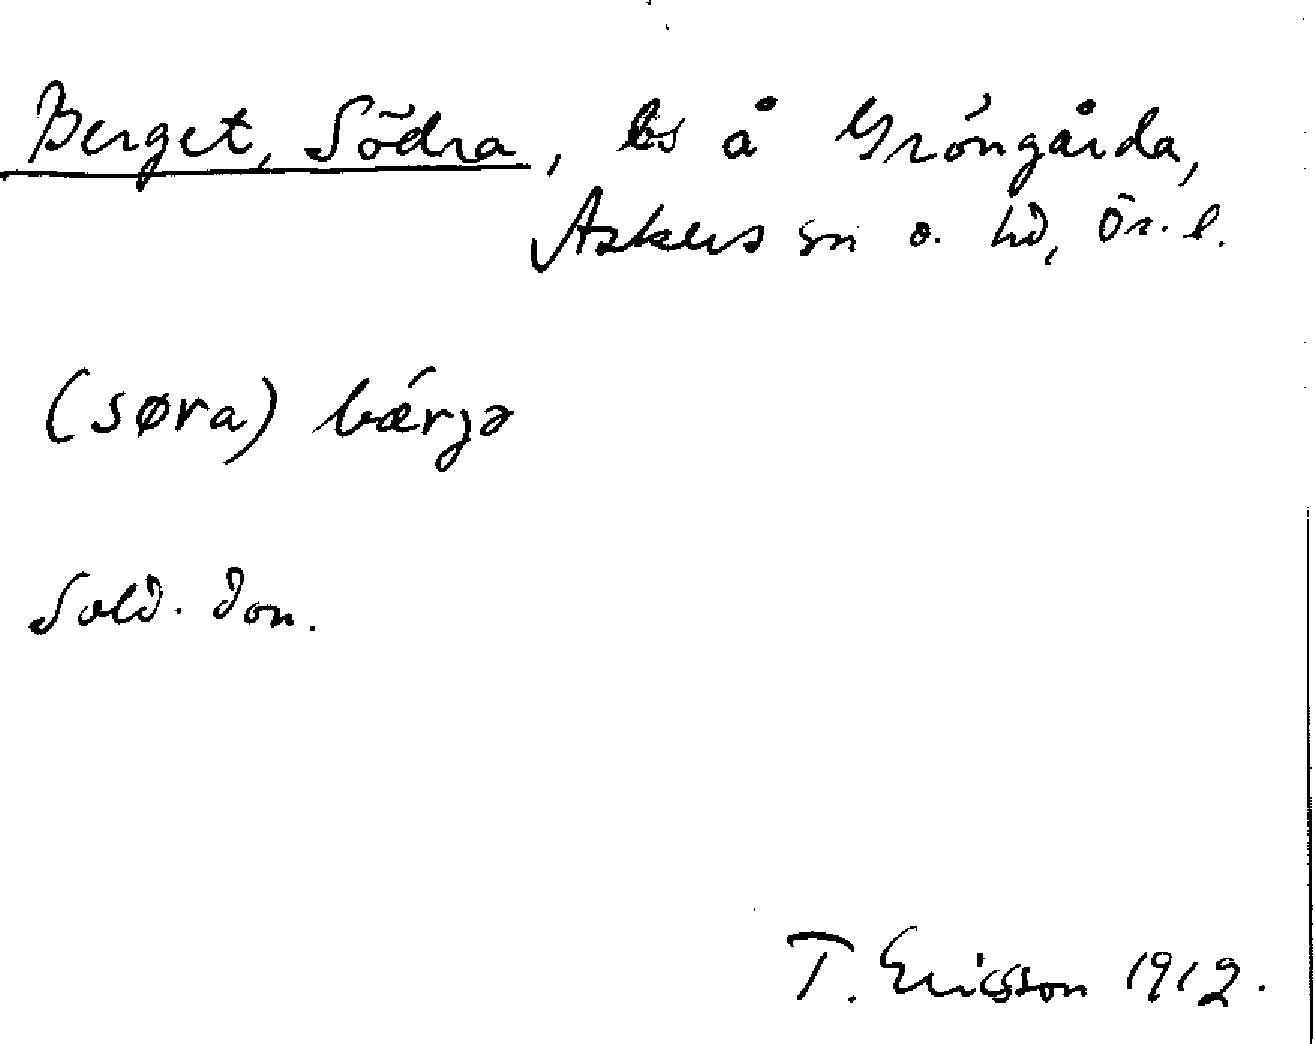 Berget, Södra, ls å Gröngårda,
Askers sn o. hd, Ör. l.
(søra) bǽrjə
Sold. don.
T. Ericsson 1912.